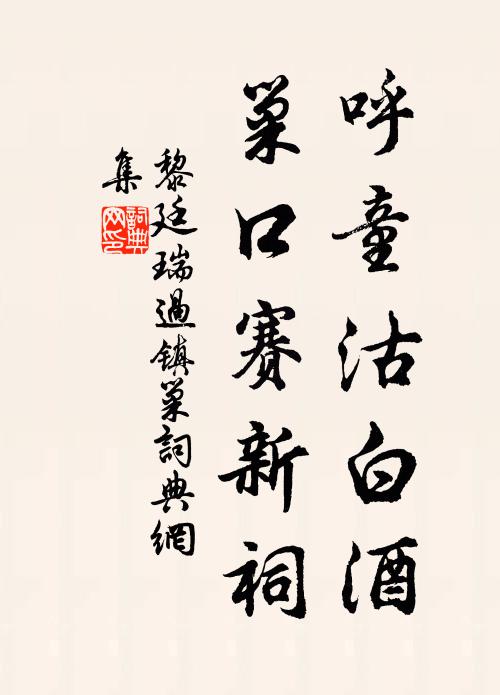 呼童沽白酒
巢口賽新祠
黎廷瑞過鎮巢詞典網
集
詞典網印